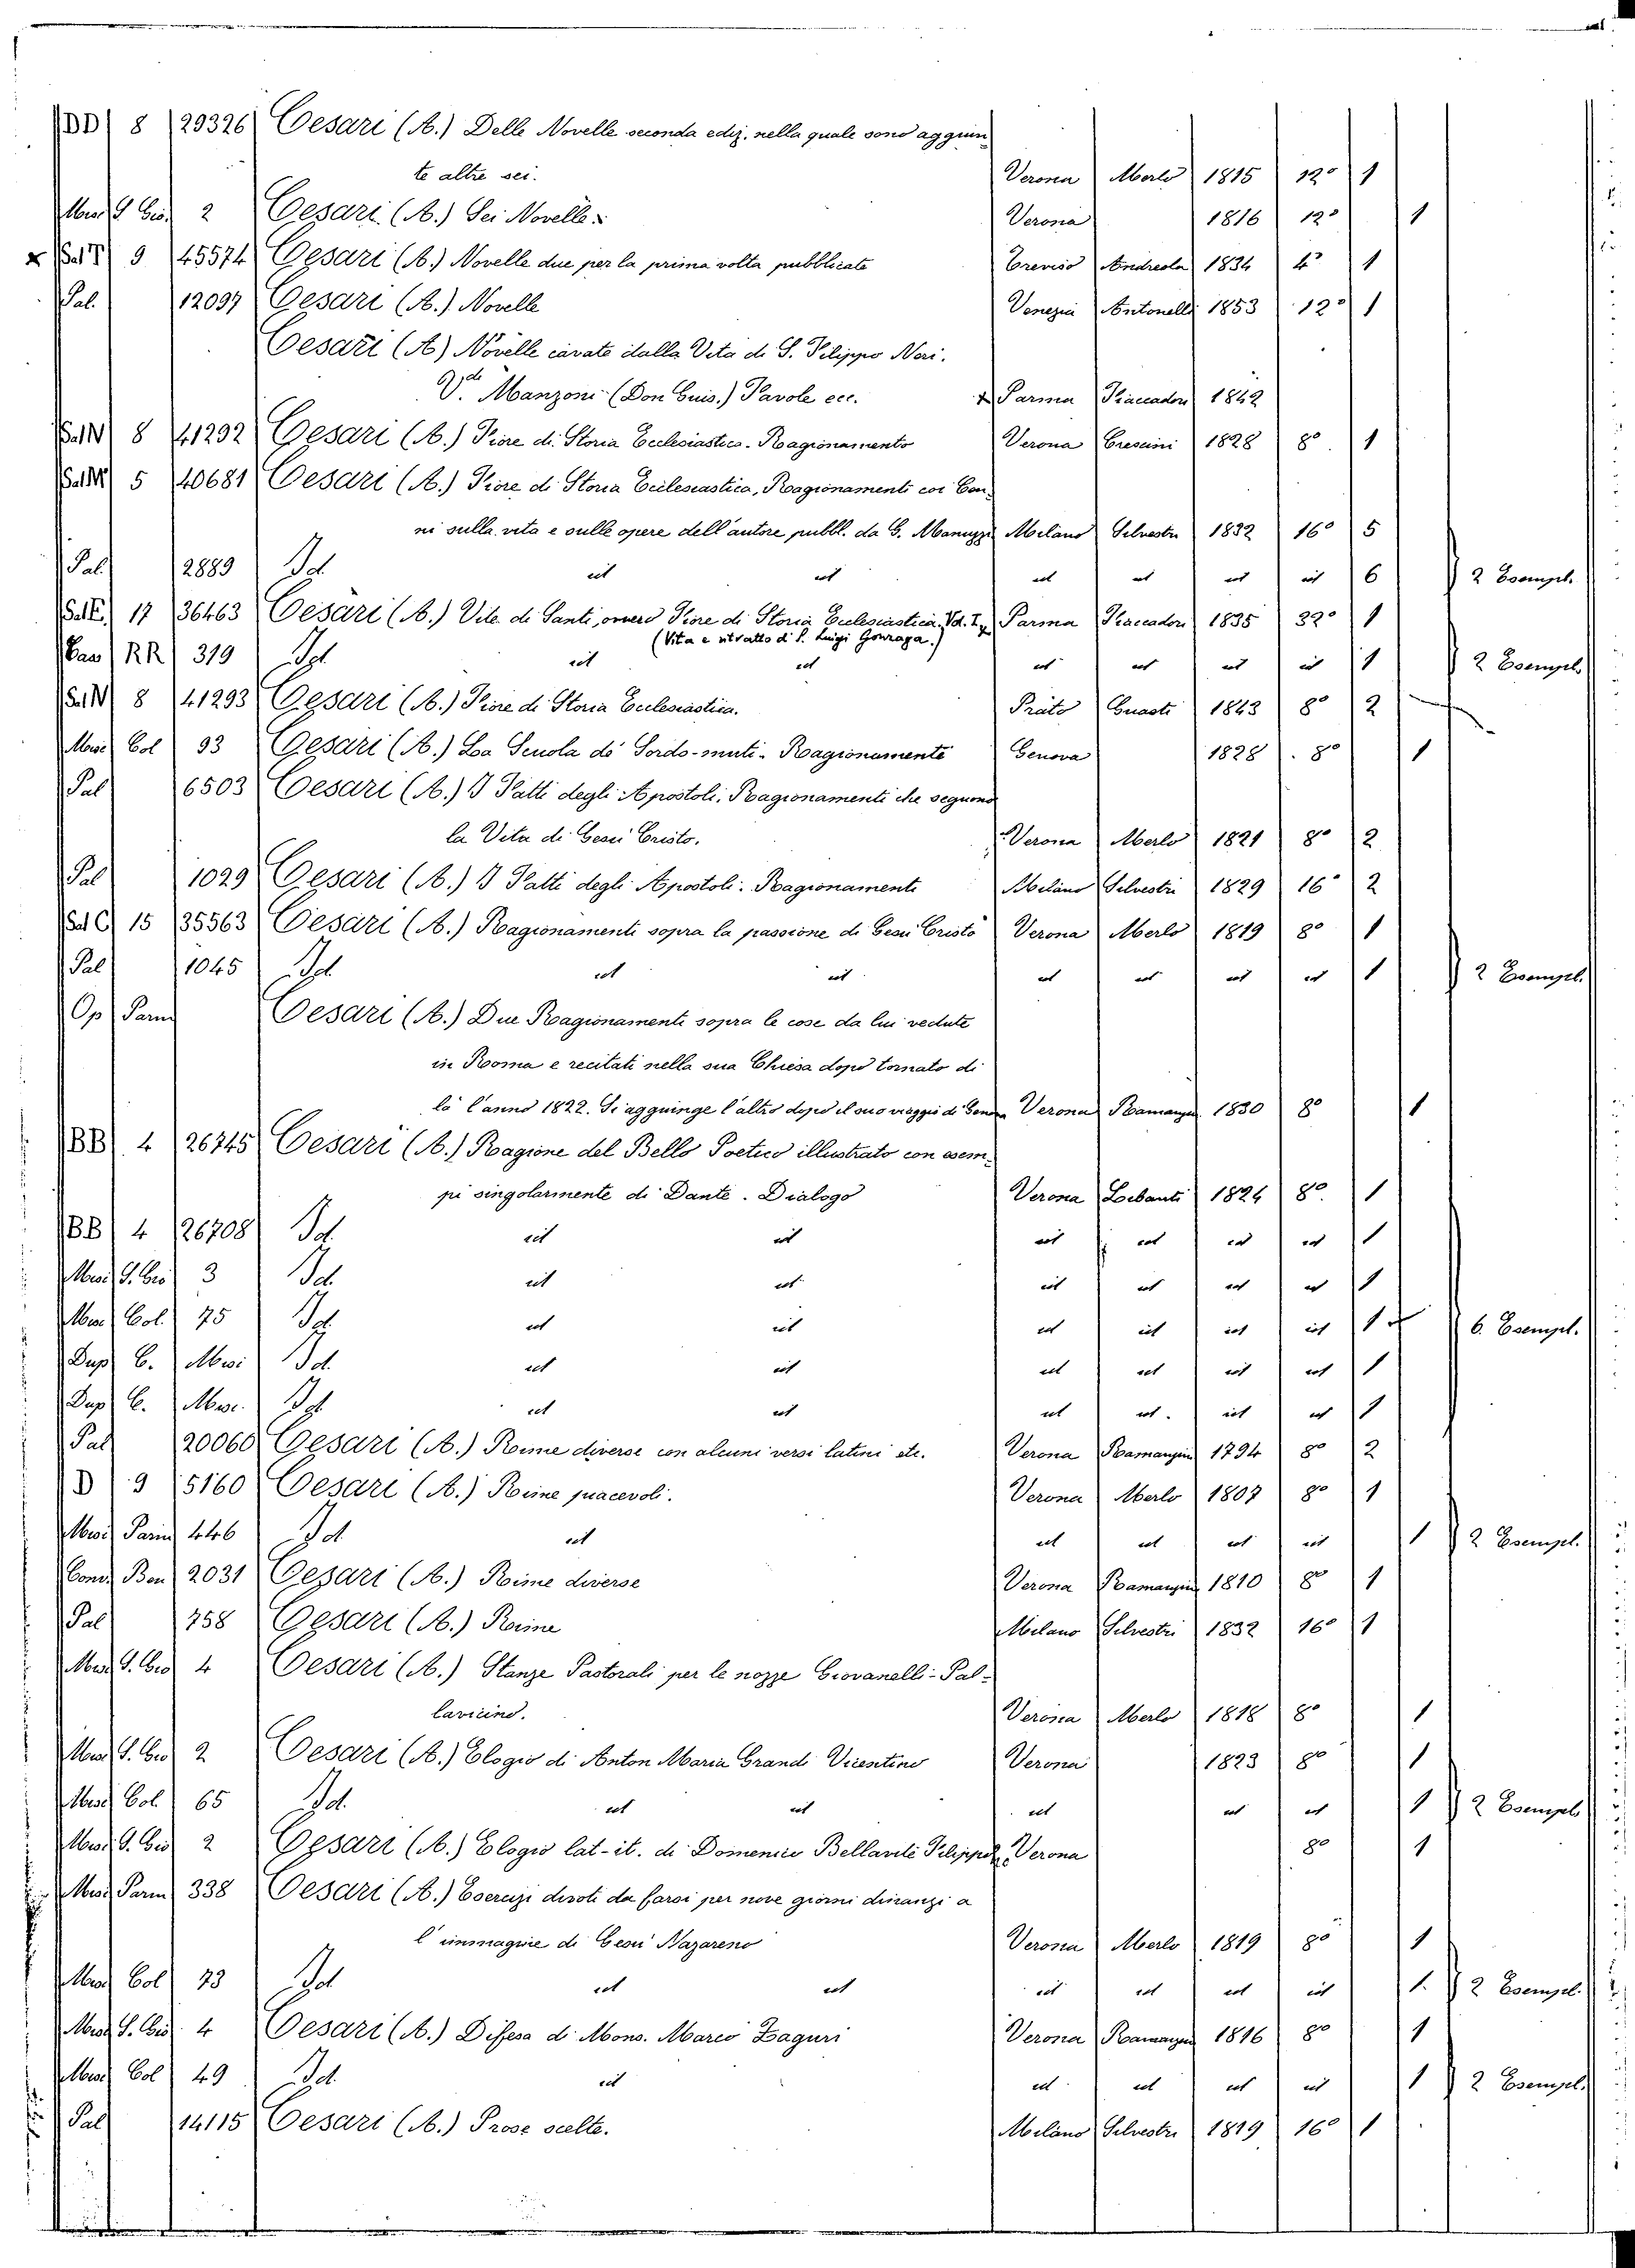 BB 8 29326 Cesari (A.) Delle Novelle seconda ediz. nella quale sono aggiun
te altre sei. Verona Merlo 1815 12° 1
2 Cesari (A.) Sei Novelle. Verona 1816 12° 1
x Sal T 9 45574 Cesari (A.) Novelle due per la prima volta pubblicate Treviso Andreola 1834 4° 1
Pal. 12097 Cesari (A.) Novelle Venezia Antonelli 1853 12° 1
Cesari (A) Novelle cavate dalla Vita di S. Filippo Neri.
V.di Manzoni (Don Gius.) Favole ecc. x Parma Fiaccadori 1842
Sal N 8 41292 Cesari (A.) Fiore di Storia Ecclesiastica. Ragionamento Verona Crescini 1828 8° 1
Sal M 5 40681 Cesari (A.) Fiore di Storia Ecclesiastica, Ragionamenti coi Cen
ni sulla vita e sulle opere dell'autore pubbl. da G. Manuzzi Milano Silvestri 1832 16° 5
Pal 2889 Id. cit cit cit cit cit cit 6 2 Esempl.
Sal E 17 36463 Cesari (A.) Vite di Santi, ovvero Fiore di Storia Ecclesiastica, Vol. I. Parma Fiaccadori 1835 32° 1
(Vita e ritratto di S. Luigi Gonzaga.)
RR 319 Id. cit cit cit cit cit cit 1 2 Esempl.
Sal N 8 41293 Cesari (A.) Fiore di Storia Ecclesiastica. Prato Guasti 1843 8° 2
Misc Col 93 Cesari (A.) La Scuola de' Sordo-muti. Ragionamento Genova 1828 8° 1
Pal 6503 Cesari (A.) I Fatti degli Apostoli, Ragionamenti che seguono
la Vita di Gesù Cristo. Verona Merlo 1821 8° 2
Pal 1029 Cesari (A.) I Fatti degli Apostoli. Ragionamenti Milano Silvestri 1829 16° 2
Sal C 15 35563 Cesari (A.) Ragionamenti sopra la passione di Gesù Cristo Verona Merlo 1819 8° 1
Pal 1045 Id. cit cit cit cit cit cit 1 2 Esempl.
Op Parm Cesari (A.) Due Ragionamenti sopra le cose da lui vedute
in Roma e recitati nella sua Chiesa dopo tornato di
là l'anno 1822. Si aggiunge l'altro dopo il suo viaggio di Verona Ramanzini 1830 8° 1
BB 4 26745 Cesari (A.) Ragione del Bello Poetico illustrato con esem
pi singolarmente di Dante. Dialogo Verona Libanti 1824 8° 1
BB 4 26708 Id. cit cit cit cit cit cit 1
Misc G. Gio 3 Id. cit cit cit cit cit cit 1
Misc Col. 75 Id. cit cit cit cit cit cit 1 6. Esempl.
Dup C. Misc Id. cit cit cit cit cit cit 1
Dup C. Misc. Id. cit cit cit cit cit cit 1
Pal 20060 Cesari (A.) Rime diverse con alcuni versi latini etc. Verona Ramanzini 1794 8° 2
D 9 5160 Cesari (A.) Rime piacevoli. Verona Merlo 1807 8° 1
Misc Parm 446 Id. cit cit cit cit cit 1 2 Esempl.
2031 Cesari (A.) Rime diverse Verona Ramanzini 1810 8° 1
Pal 758 Cesari (A.) Rime Milano Silvestri 1832 16° 1
Misc G. Gio 4 Cesari (A.) Stanze Pastorali per le nozze Giovanelli-Pal-
lavicino. Verona Merlo 1818 8° 1
Misc G. Gio 2 Cesari (A.) Elogio di Anton Maria Grandi Vicentino Verona 1823 8° 1
Misc Col. 65 Id. cit cit cit cit cit 1 2 Esempl.
Misc G. Gio 2 Cesari (A.) Elogio lat-it. di Domenico Bellaviti Filippin Verona 8° 1
Misc Parm 338 Cesari (A.) Esercizi devoti da farsi per nove giorni dinanzi a
l'immagine di Gesù Nazareno Verona Merlo 1819 8° 1
Misc Col 73 Id. cit cit cit cit cit cit 1. 2 Esempl.
Misc G. Gio. 4 Cesari (A.) Difesa di Mons. Marco Zaguri Verona Ramanzini 1816 8° 1
Misc Col 49 Id. cit cit cit cit cit 1 2 Esempl.
Pal 14115 Cesari (A.) Prose scelte. Milano Silvestri 1819 16° 1